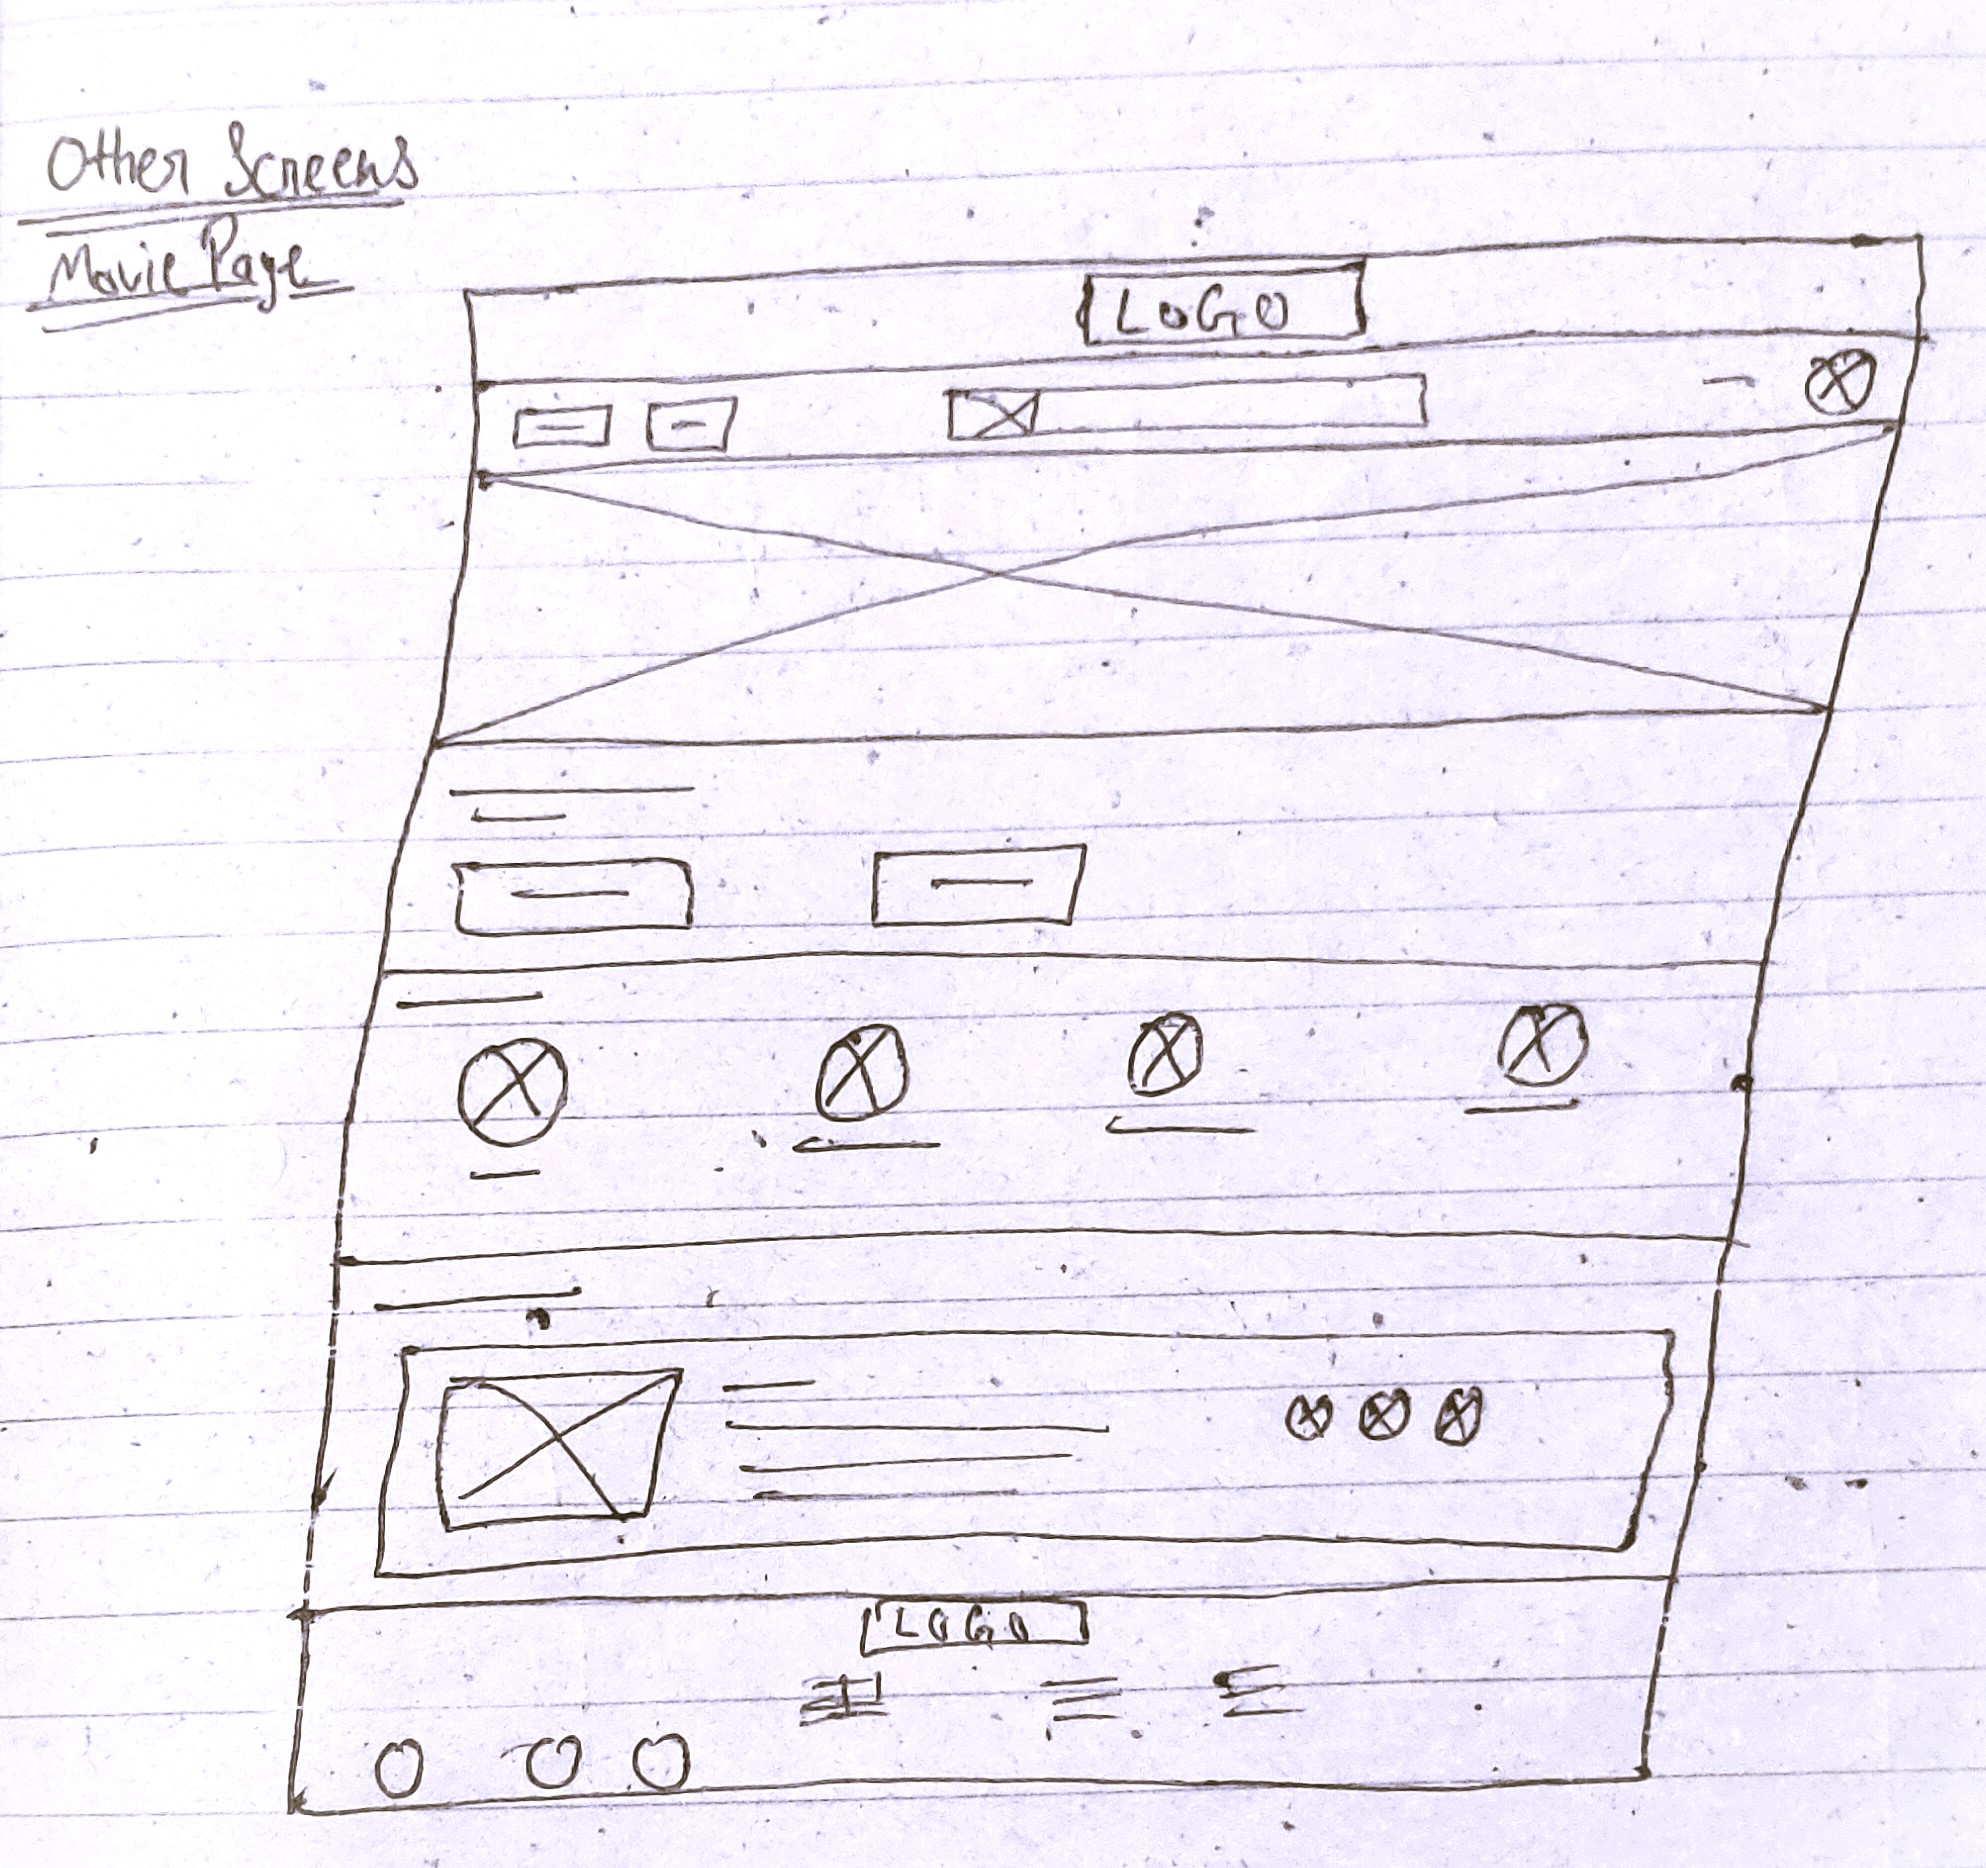 Other Screens
Movie Page
LOGO
LOGO